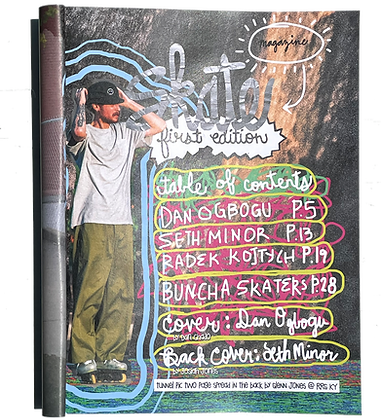 magazine
Skate
first edition
table of contents
DAN OGBOGU P.5
SETH MINOR P.13
RADEK KOJTYCH P.19
BUNCHA SKATERS P.28
Cover: Dan Ogbogu
Back Cover: Seth Minor
by Josiah Jones
TUNNEL PIC TWO PAGE SPREAD IN THE BACK BY GLENN JONES @ RRG KY